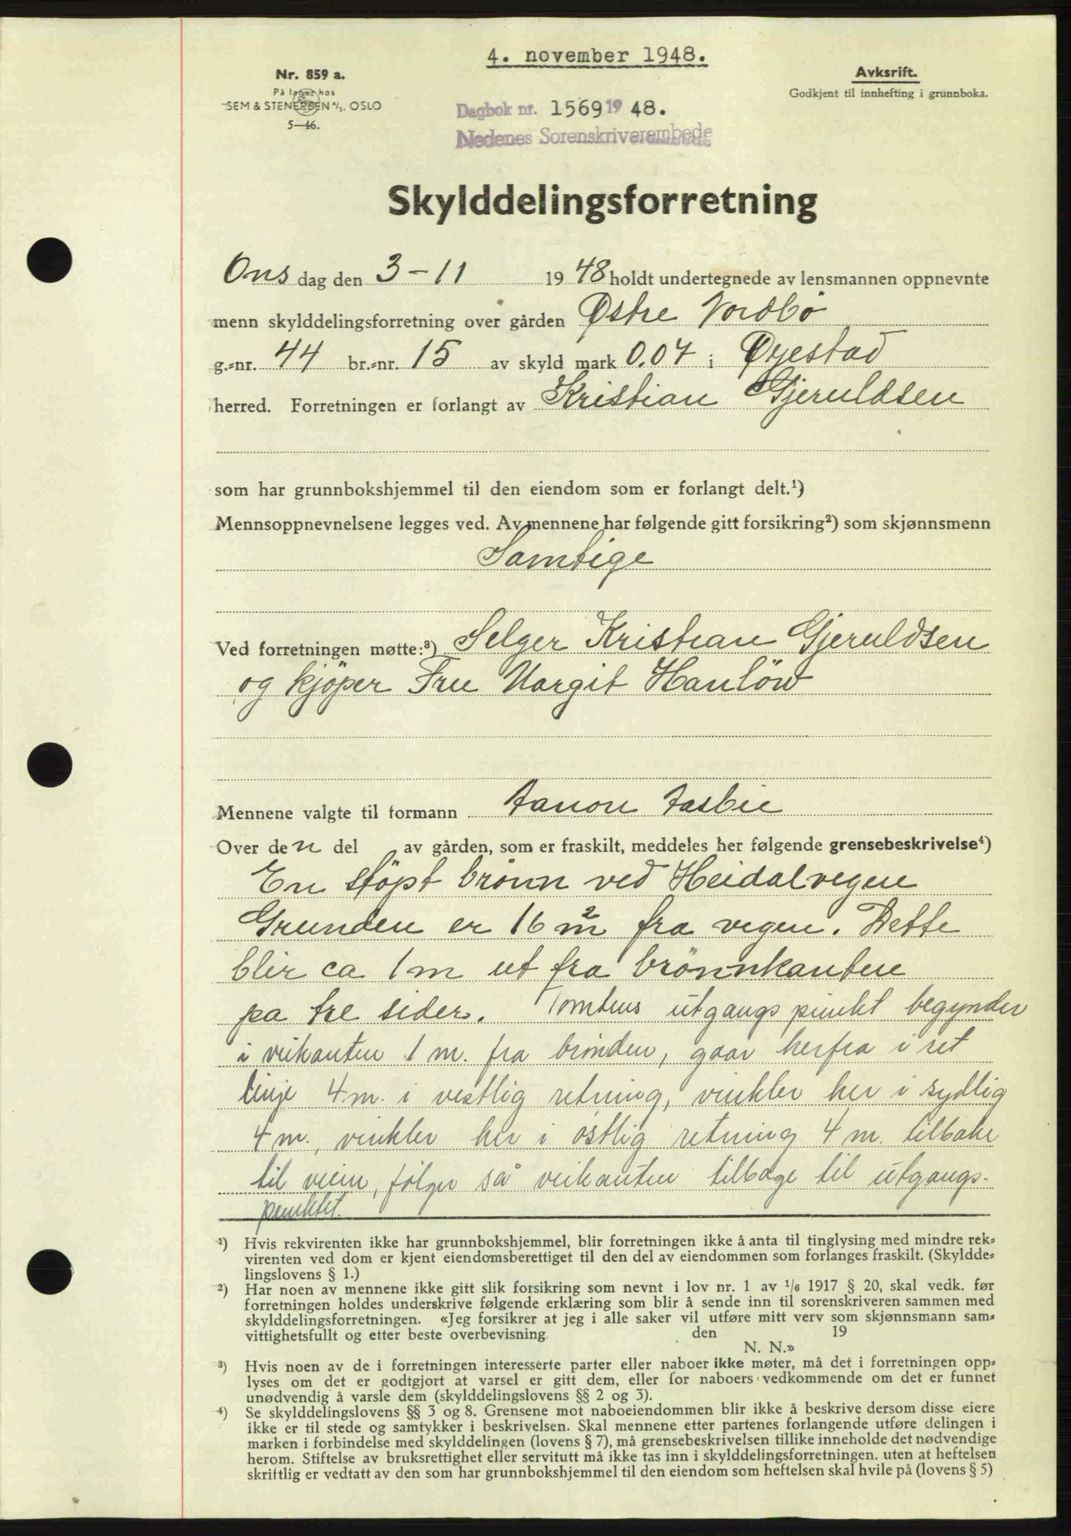 4. november 1948.
Nr. 859 a.
På lager hos
SEM & STENERSEN A/S. OSLO
5—46.
Avksrift.
Godkjent til innhefting i grunnboka.
Dagbok nr. 1569 19 48.
Nedenes Sorenskriverembede
Skylddelingsforretning
Ons dag den 3-11 19 48 holdt undertegnede av lensmannen oppnevnte
menn skylddelingsforretning over gården Østre Nordbø
g.-nr. 44 br.-nr. 15 av skyld mark 0.07 i Øyestad
herred. Forretningen er forlangt av Kristian Gjeruldsen
som har grunnbokshjemmel til den eiendom som er forlangt delt.¹)
Mennsoppnevnelsene legges ved. Av mennene har følgende gitt forsikring²) som skjønnsmenn
Samtige
Ved forretningen møtte:³) Selger Kristian Gjeruldsen
og kjöper Fru Margit Hanlöw
Mennene valgte til formann Aanon
Over den del av gården, som er fraskilt, meddeles her følgende grensebeskrivelse⁴)
En støpt brönn ved Heidalvegen
Grunden er 16 m² fra vegen. Dette
blir ca 1 m ut fra brönnkanten
pa tre sider. Tomtens utgangspunkt begynder
i veikanten 1 m. fra brönden, gaar herfra i ret
linje 4 m. i vestlig retning, vinkler her i sydlig
4 m., vinkler her i østlig retning 4 m. tilbake
til veien, følger så veikanten tilbage til utgangs-
punktet.
¹) Hvis rekvirenten ikke har grunnbokshjemmel, blir forretningen ikke å anta til tinglysing med mindre rek-
virenten ved dom er kjent eiendomsberettiget til den del av eiendommen som forlanges fraskilt. (Skyldde-
lingslovens § 1.)
²) Har noen av mennene ikke gitt slik forsikring som nevnt i lov nr. 1 av 1/6 1917 § 20, skal vedk. før
forretningen holdes underskrive følgende erklæring som blir å sende inn til sorenskriveren sammen med
skylddelingsforretningen. «Jeg forsikrer at jeg i alle saker vil utføre mitt verv som skjønnsmann sam-
vittighetsfullt og etter beste overbevisning. den 19
N. N.»
³) Hvis noen av de i forretningen interesserte parter eller naboer ikke møter, må det i forretningen opp-
lyses om det er godtgjort at varsel er gitt dem, eller for naboers vedkommende om det er funnet
unødvendig å varsle dem (skylddelingslovens §§ 2 og 3).
⁴) Se skylddelingslovens §§ 3 og 8. Grensene mot naboeiendommen blir ikke å beskrive dersom disse eiere
ikke er til stede og samtykker i beskrivelsen. Skal mennene etter partenes forlangende utføre delingen i
marken i forbindelse med skylddelingen (lovens § 7), må grensebeskrivelsen tillike inneholde det nødvendige
herom. Stiftelse av bruksrettighet eller servitutt må ikke tas inn i skylddelingsforretningen, uten at heftelsen
skriftlig er vedtatt av den som har grunnbokshjemmel til den eiendom som heftelsen skal hvile på (lovens § 5)